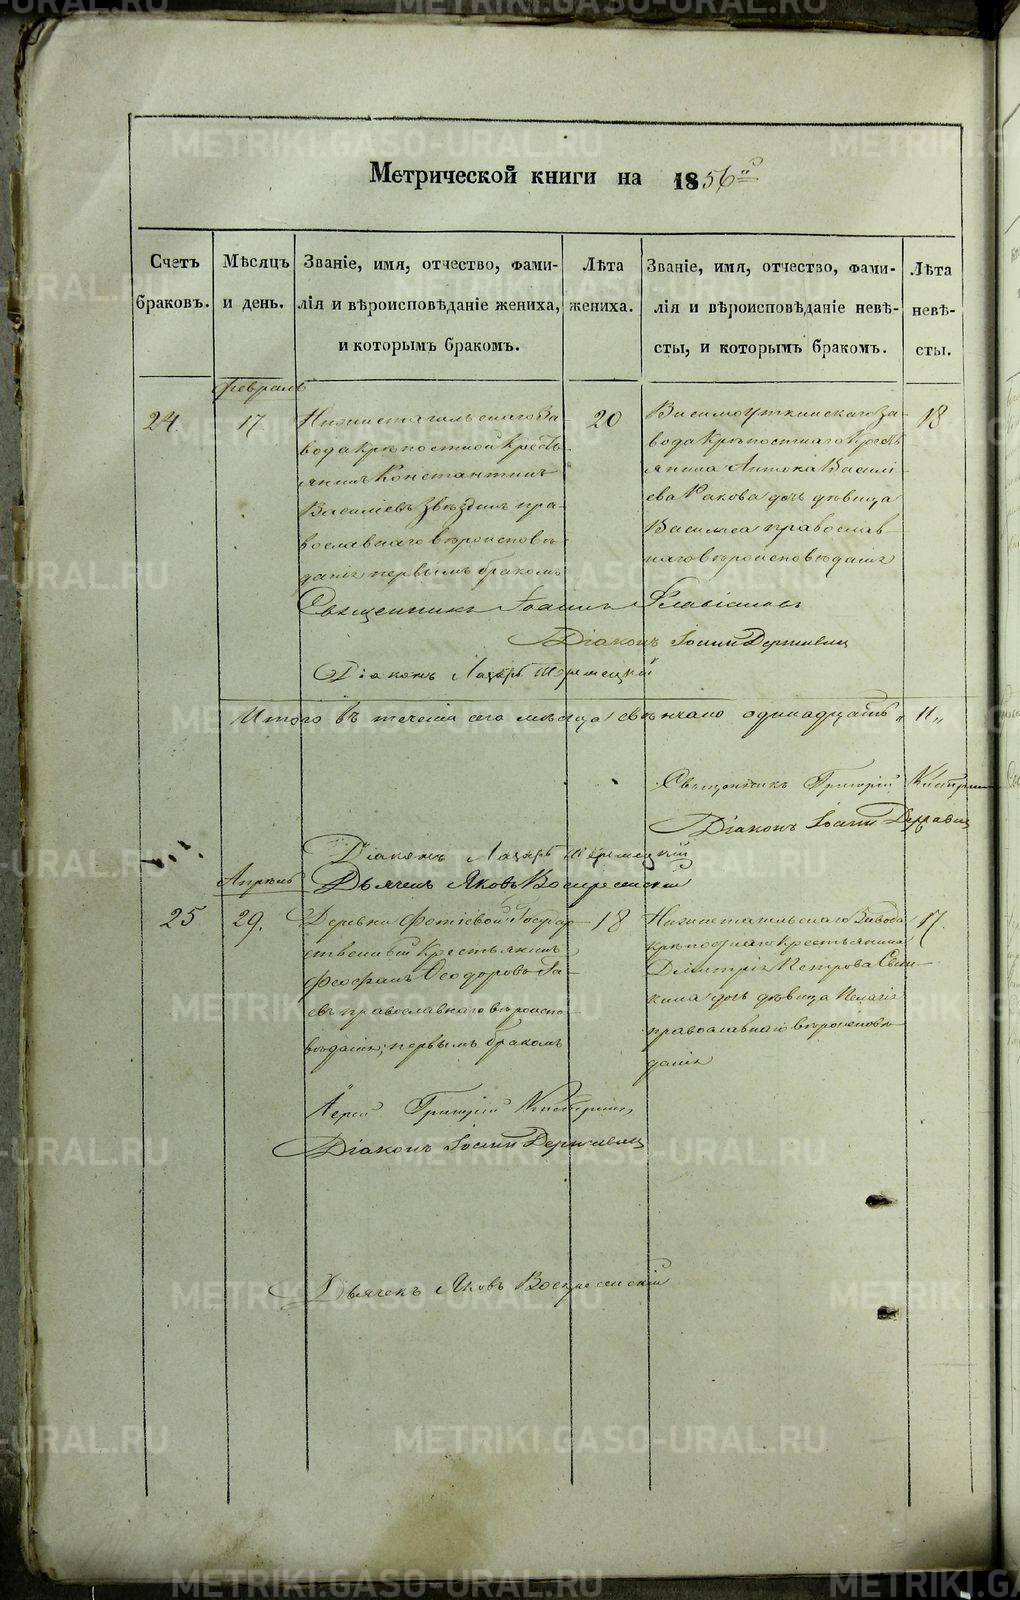 Метрической книги на 1856й
Счетъ браковъ.
Мѣсяцъ и день.
Званіе, имя, отчество, фами-
лія и вѣроисповѣданіе жениха,
и которымъ бракомъ.
Лѣта жениха.
Званіе, имя, отчество, фами-
лія и вѣроисповѣданіе невѣ-
сты, и которымъ бракомъ.
Лѣта невѣ-
сты.
Февраль
24
17.
Нижнетагильскаго За-
вода крѣпостной Кресть-
янинъ Константинъ
Василіевъ Звѣздинъ пра-
вославнаго вѣроисповѣ-
данія первымъ бракомъ
20
Висимоуткинскаго За-
вода Крѣпостнаго Кресть-
янина Антона Василі-
ева Ракова дочь дѣвица
Васильева православ-
наго вѣроисповѣданія
18
Священникъ Іоаннъ Флавіановъ
Діаконъ Іоаннъ
Діаконъ Лазарь
Итого въ теченіи сего мѣсяца свѣнчано одинадцать „11„
Священникъ Григорій
Діаконъ Іоаннъ
Діаконъ Лазарь
Дьячекъ Яковъ Воскресенскій
Апрѣль
25
29.
Деревни Фотіевой Государ-
ственный крестьянинъ
Феофанъ Ѳеодоровъ Га-
евъ православнаго вѣроиспо-
вѣданія; первымъ бракомъ
18
Нижнетагильскаго Завода
крѣпостнаго крестьянина
Димитрія Петрова
дочь дѣвица Пелагія
православнаго вѣроисповѣ-
данія
17.
Іерей Григорій
Діаконъ Іоаннъ
Дьячекъ Яковъ Воскресенскій
METRIKI.GASO-URAL.RU